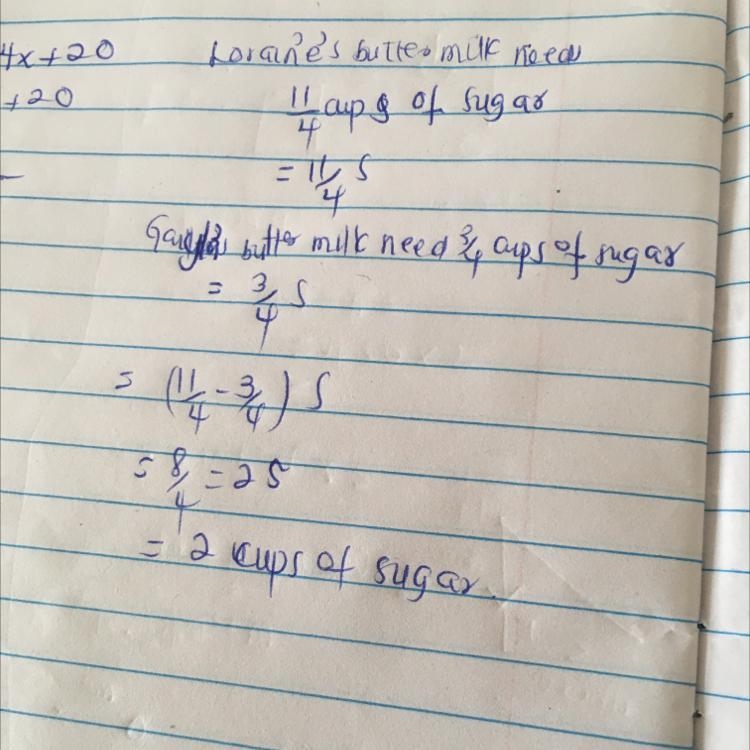 4x+20
+20
Loraine's butter milk need
11/4 cups of sugar
= 11/4 S
butter milk need 3/4 cups of sugar
= 3/4 S
= (11/4 - 3/4) S
= 8/4 = 2 S
= 2 cups of sugar.